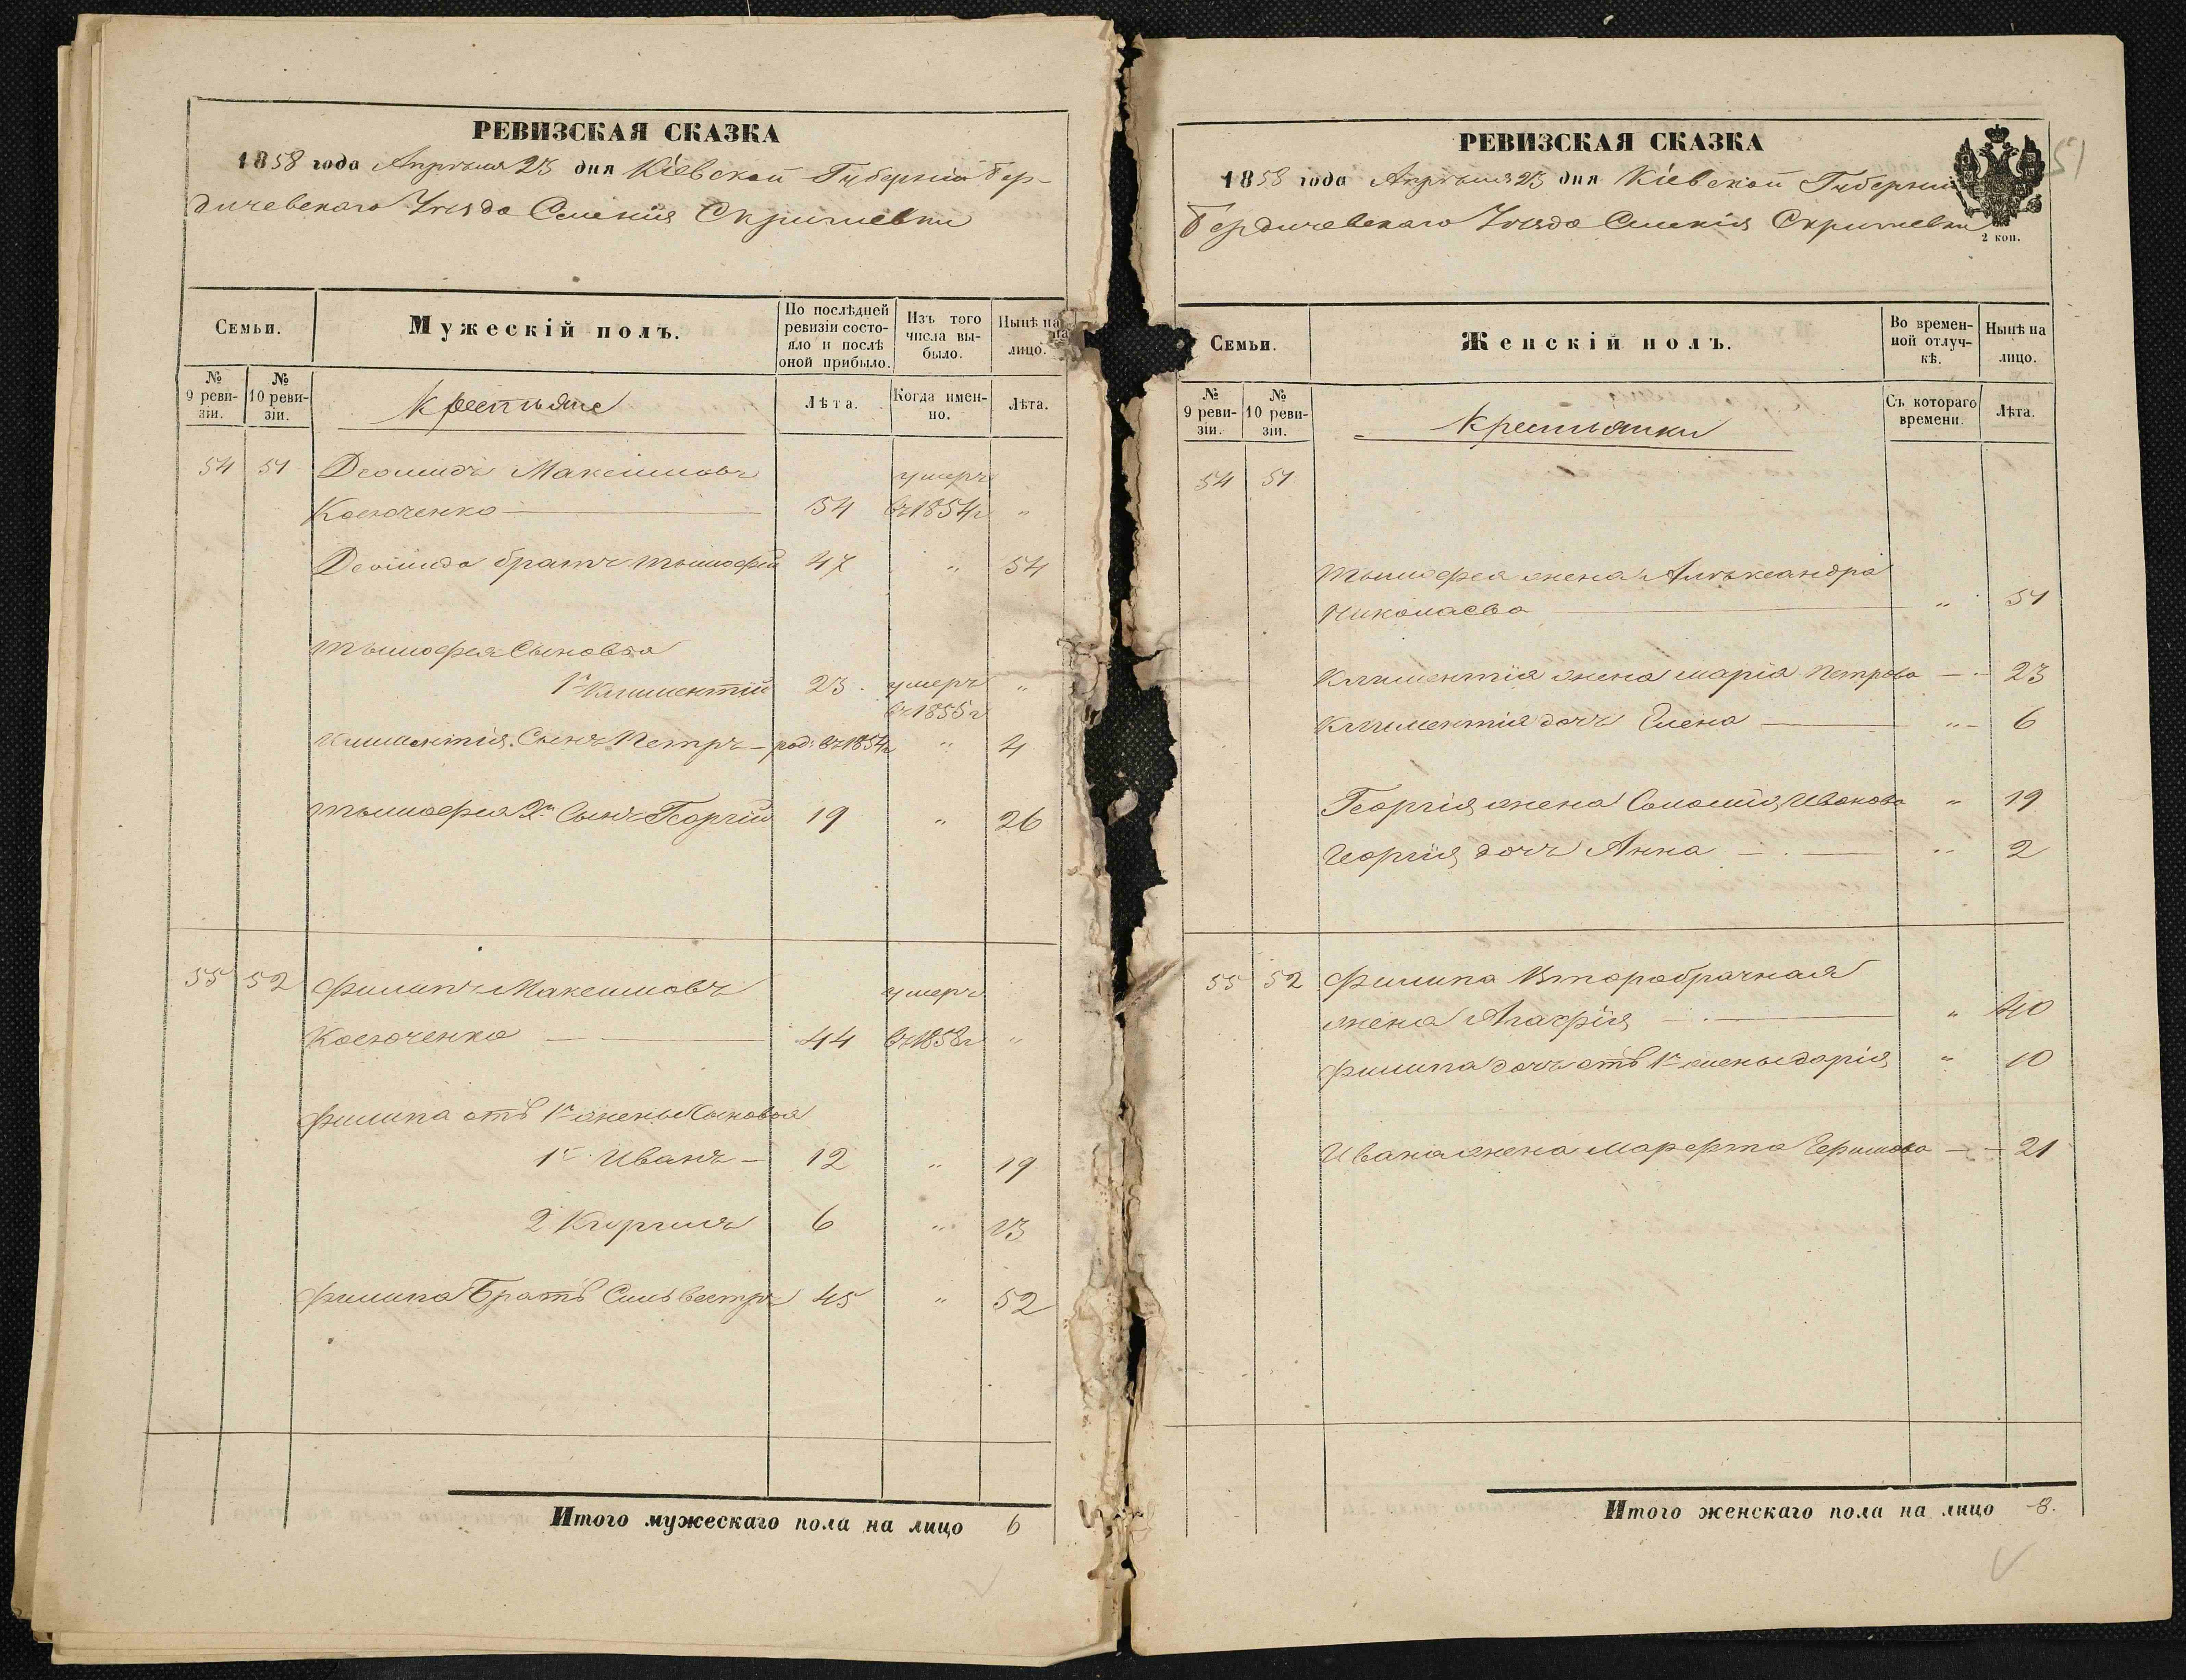 РЕВИЗСКАЯ СКАЗКА
1858 года Апрѣля 23 дня Кіевской Губерніи Бер-
дичевскаго Уѣзда Селенія Скригилевки
Семьи.
Мужескій полъ.
По послѣдней ревизіи состо-яло и послѣ оной прибыло.
Изъ того числа вы-было.
Нынѣ на лицо.
№ 9 реви-зіи.
№ 10 реви-зіи.
Крестьяне
Лѣта.
Когда имен-но.
Лѣта.
54 51 Деомидъ Максимовъ умеръ
Косюченко 54 въ 1854 г "
Деомида братъ Тымофей 47 " 54
Тымофея Сыновья
1й Климентій 23 умеръ "
въ 1855 г
Климентія Сынъ Петръ род: въ 1854 г " 4
Тымофея 2й Сынъ Георгій 19 " 26
55 52 Филипъ Максимовъ умеръ
Косюченко 44 въ 1858 г "
Филипа отъ 1й жены Сыновья
1й Иванъ 12 " 19
2 6 " 13
Филипа Братъ Сильвестръ 45 " 52
Итого мужескаго пола на лицо 6
51
РЕВИЗСКАЯ СКАЗКА
1858 года Апрѣля 23 дня Кіевской Губерніи
Бердичевскаго Уѣзда Селенія Скригилевки
2 коп.
Семьи.
Женскій полъ.
Во времен-ной отлуч-кѣ.
Нынѣ на лицо.
№ 9 реви-зіи.
№ 10 реви-зіи.
Крестьянки
Съ котораго времени.
Лѣта.
54 51
Тымофея жена Алѣксандра
Николаева " 51
Климентія жена Марія Петрова 23
Климентія дочъ Елена " 6
Георгія жена Соломія Иванова " 19
Георгія дочъ Анна " 2
55 52 Филипа Второбрачная
жена Агафія " 40
Филипа дочъ отъ 1й жены Дарія " 10
Ивана жена Марфта 21
Итого женскаго пола на лицо 8.